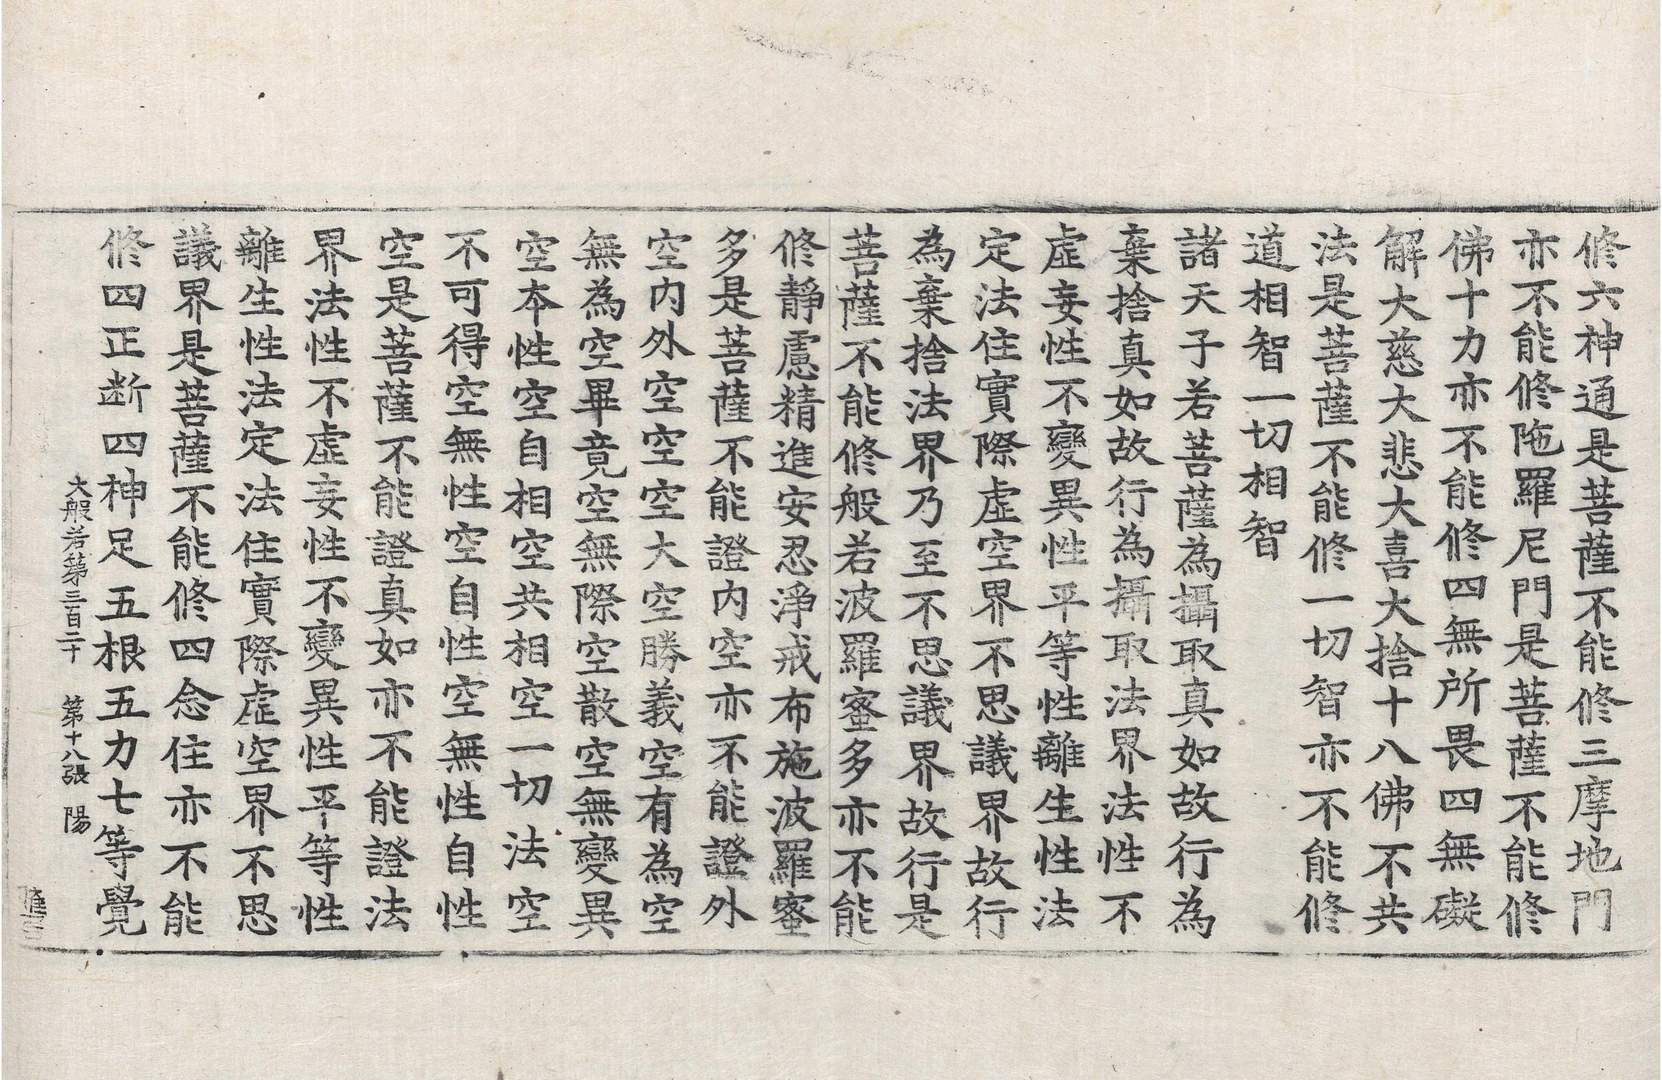 修六神通是菩薩不能修三摩地門
亦不能修陁羅尼門是菩薩不能修
佛十力亦不能修四無所畏四無礙
解大慈大悲大喜大捨十八佛不共
法是菩薩不能修一切智亦不能修
道相智一切相智
諸天子若菩薩為攝取真如故行為
棄捨真如故行為攝取法界法性不
虛妄性不變異性平等性離生性法
定法住實際虛空界不思議界故行
為棄捨法界乃至不思議界故行是
菩薩不能修般若波羅蜜多亦不能
修靜慮精進安忍淨戒布施波羅蜜
多是菩薩不能證內空亦不能證外
空內外空空空大空勝義空有為空
無為空畢竟空無際空散空無變異
空本性空自相空共相空一切法空
不可得空無性空自性空無性自性
空是菩薩不能證真如亦不能證法
界法性不虛妄性不變異性平等性
離生性法定法住實際虛空界不思
議界是菩薩不能修四念住亦不能
修四正断四神足五根五力七等覺
大般若第三百二十 第十八張 陽